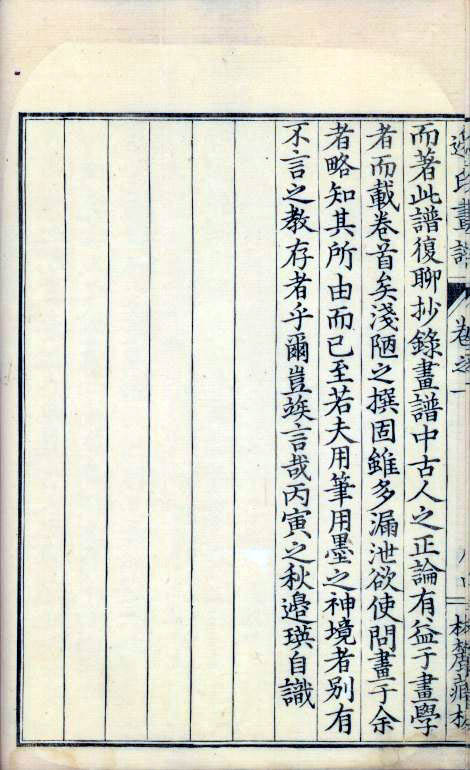 邊氏畫譜
卷之一
而著此譜復聊抄錄畫譜中古人之正論有益于畫學
者而載卷首矣淺陋之撰固雖多漏泄欲使問畫于余
者略知其所由而已至若夫用筆用墨之神境者別有
不言之教存者乎爾豈竢言哉丙寅之秋邉瑛自識